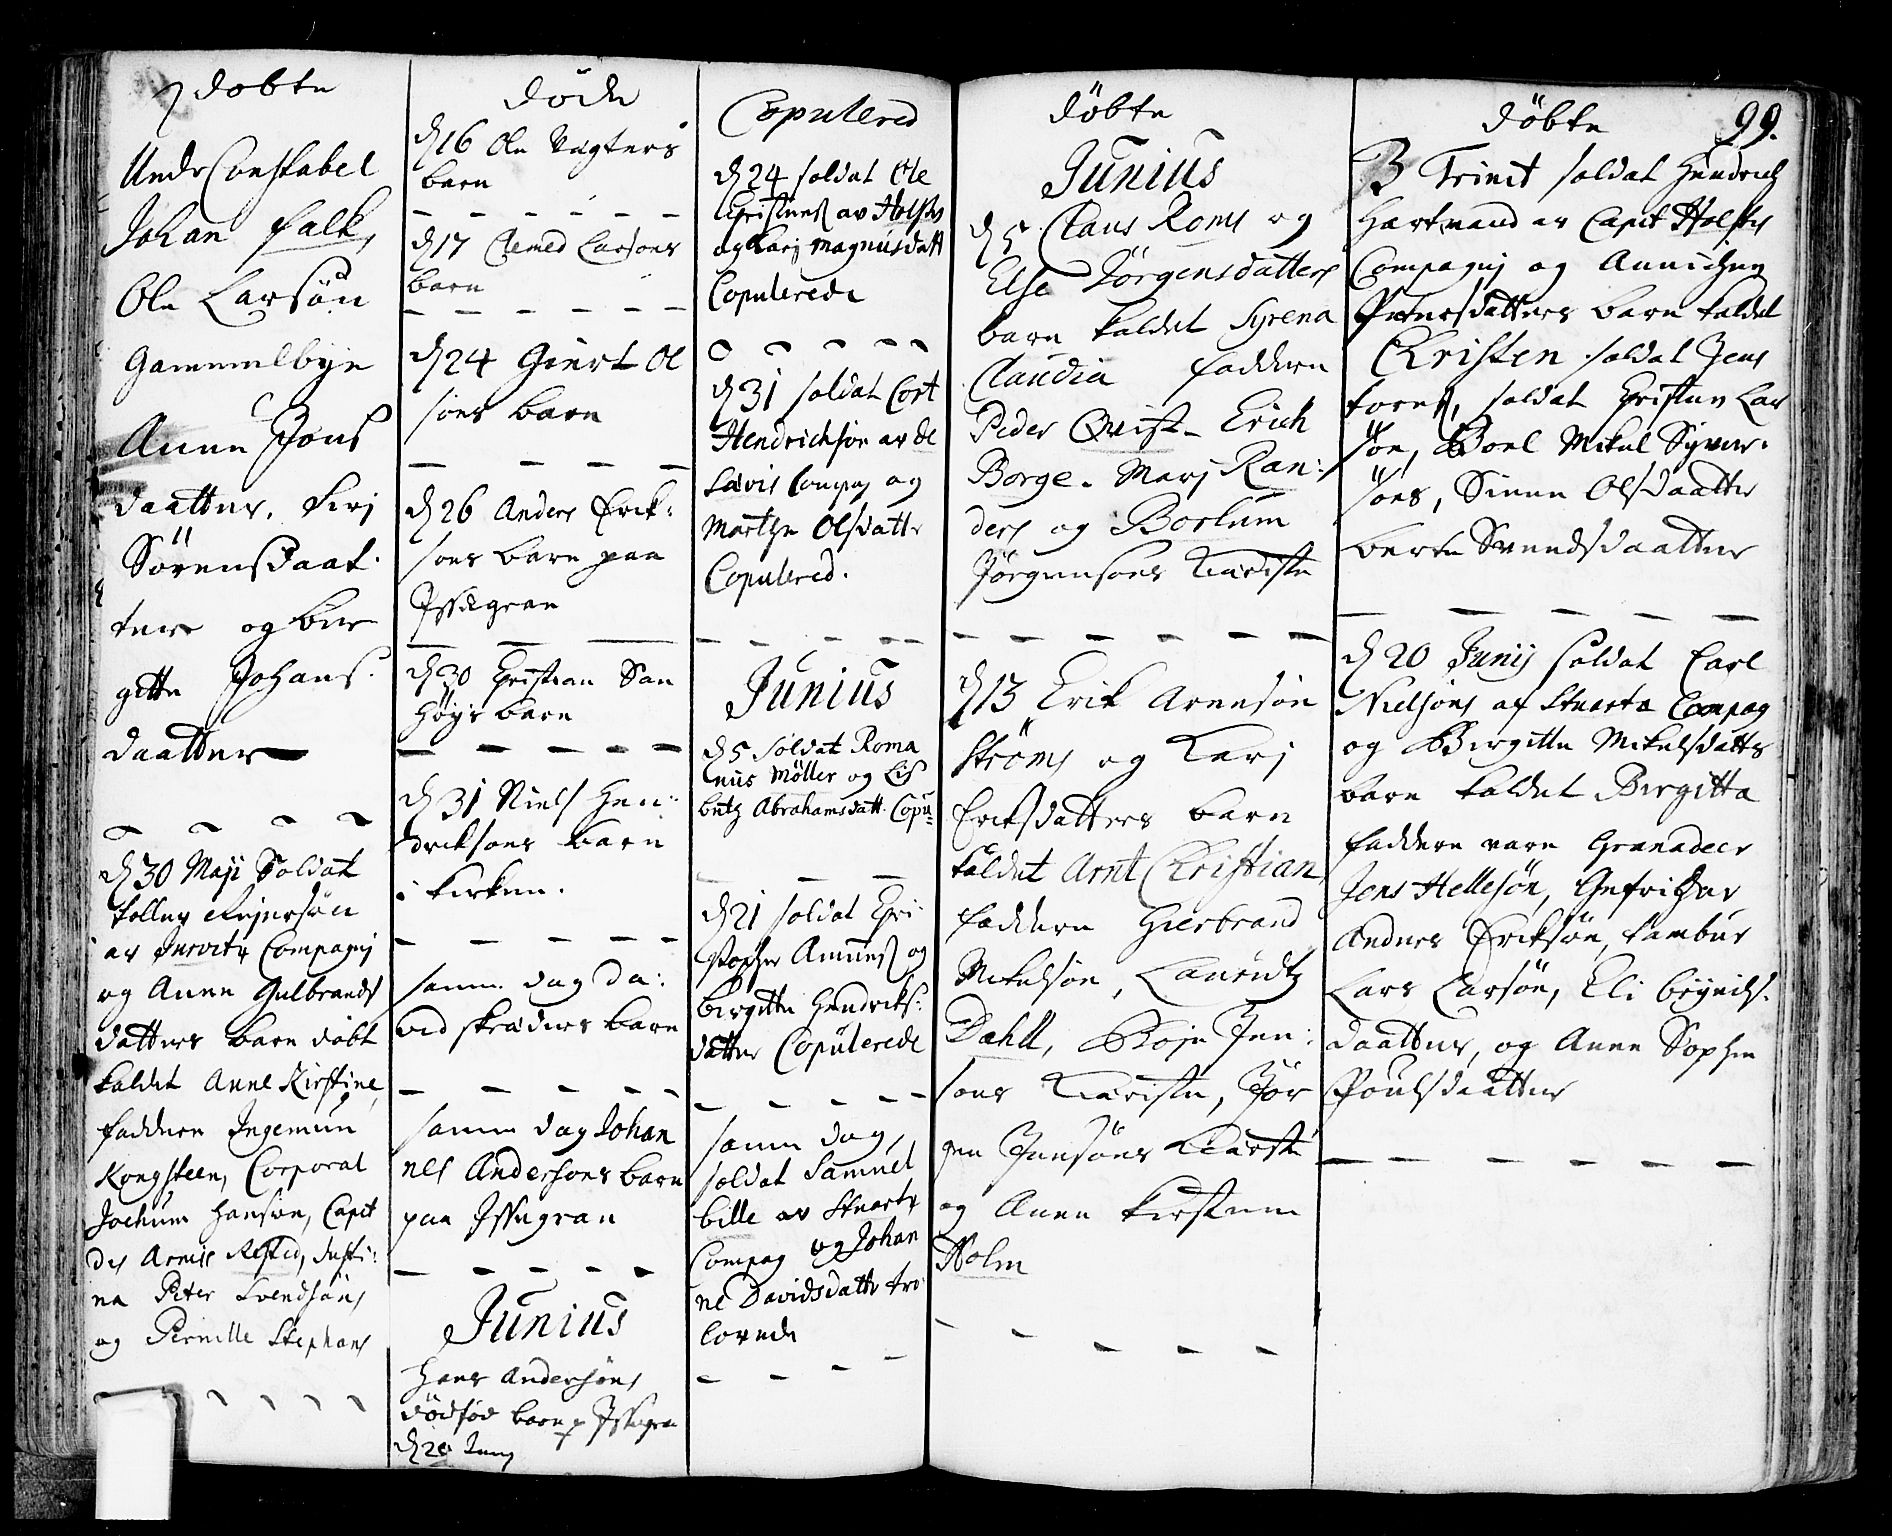 døbte
Undr Constabel
Johan Falk,
Ole Larsøn
Gammelbye
Anne Jons
daatter, Kirj
Sørensdaat
tere og bir
gitte Johans
daatter
d 30 Maji Soldat
av Compagnj
og Anne Gulbrands
datters barn døbt
kaldet Anne Kirstine,
faddere Ingemun
Kongsteen, Corporal
Jochum Hansøn, Capit
des Armis Rested, Justi:
na Peter Svendsøns
og Pernille Stephans
døde
d 16 Ole Vegters
barn
d 17 Larsons
barn
d 24 Giert Ol
sons barn
d 26 Anders Erik:
sons barn paa
Issegran
d 30 Christian San
høys barn
d 31 Niels Hen:
dricksons barn
i kirken.
samme dag Da:
vid skreders barn
samme dag Johan
nes Andersons barn
paa Issegran
Junius
Hans Andersøns
dødfød barn p Issegran
d 20 Junj
Copulered
d 24 soldat Ole
Christens av Holstes
og Karj Magnusdatt
Copulerede
d 31 soldat Cort
Hendricksøn av de
Compag og
Marthe Olsdattr
Copulered.
Junius
d 5 soldat Roma
nus Møller og Lis
beth Abrahamsdatt. Copu:
d 21 soldat Chri
stopher Amunds og
birgitte Hendricks:
datter Copulerede
samme dag,
soldat Samuel
bille av Stuarts
Compag og Johan
ne Davidsdattr tro
lovede
døbte
Junius
d 5 Claus Roms og
Else Jørgensdatters
barn kaldet Syrena
Claudia faddere
Peder Qvist, Erich
Borge, Marj Ran:
ders og Borlum
Jørgensons Kieriste
d 13 Erik Arnesøn
Strøms og Karj
Eriksdatters barn
kaldet Arnt Christian,
faddere Gierbrand
Mikelsøn, Lauridtz
Dahll, Boje Jen:
sons Kieriste, Jør
gen Jensøns Kierste
og Anne Kirstine
Holm
døbte 99.
3 Trinit soldat Hendrich
Hartmand av Capit Holstes
Compagnj og Annichen
Petersdatters barn kaldet
Christen soldat Jens
soldat Christen Lar
søn, Boel Mikel Syver
søns, Sinne Olsdaatter
berte Svendsdaatter
d 20 Junij soldat Carl
Nielsøns af Stuarts Compag
og Birgitte Mikelsdatters
barn kaldet Birgitta
faddere vare Granadeer
Jens Hellesøn, Gefriidar
Anders Eriksøn, Tambur
Lars Larsøn, Eli
daatter, og Anne Sophie
Poulsdaatter